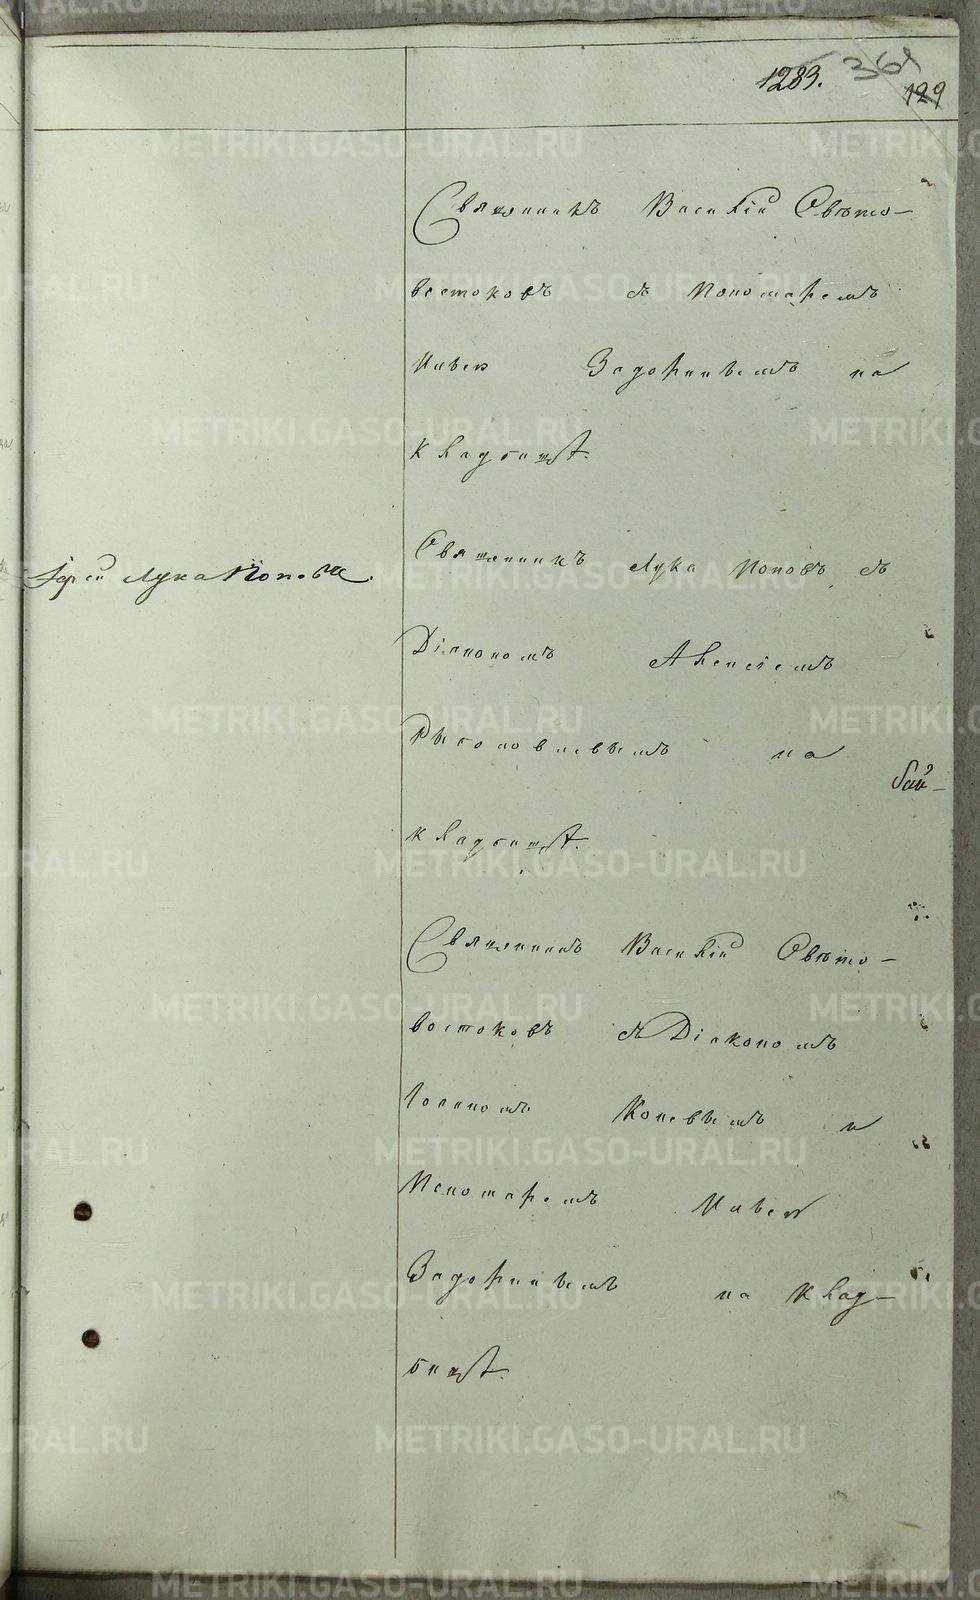 1283. 361
129
Священникъ Василій Свѣто-
востоковъ съ Пономаремъ
Задоринымъ на
кладбищѣ.
Іерей Лука Поповъ.
Священникъ Лука Поповъ съ
Діакономъ Алексіемъ
на
бищ-
кладбищѣ.
Священникъ Василій Свѣто-
востоковъ съ Діакономъ
Іоанномъ Коневымъ и
Пономаремъ
Задоринымъ на клад-
бищѣ.
METRIKI.GASO-URAL.RU